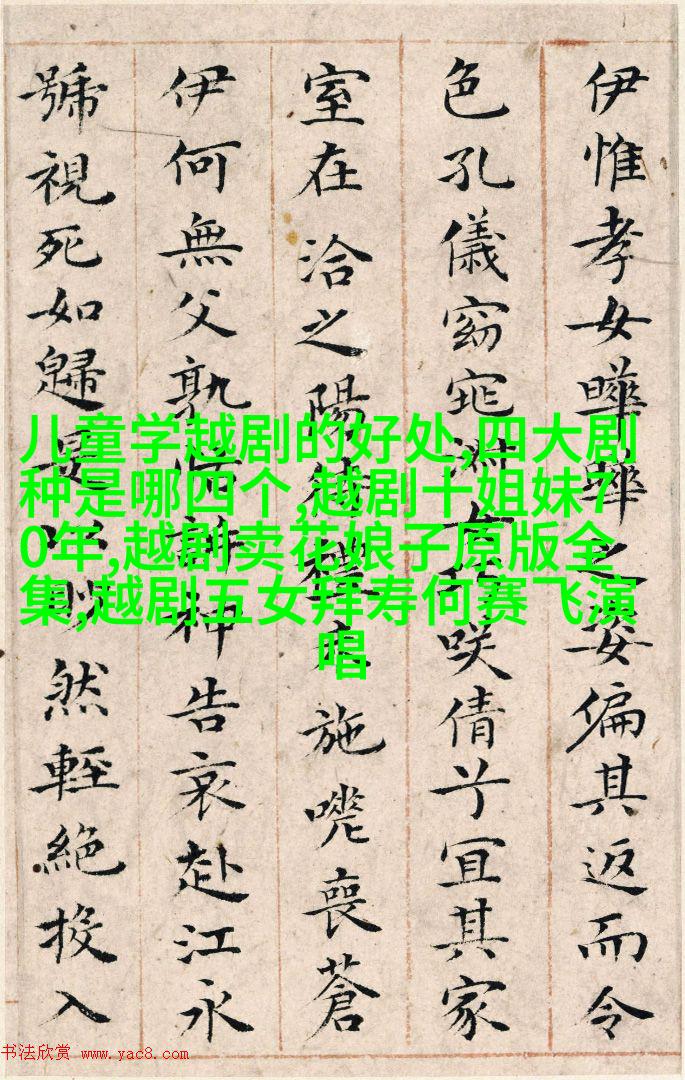 伊惟孝女曄曄之姿偏其返而令
色孔儀窈窕淑女巧咲倩兮宜其家
室在洽之陽待禮未施嗟喪蒼
伊何無父孰怙訴神告哀赴江永
號視死如歸是以眇然輕絕投入
儿童学越剧的好处,四大剧
种是哪四个,越剧十姐妹7
0年,越剧卖花娘子原版全
集,越剧五女拜寿何赛飞演
唱
书法欣赏 www.yac8.com